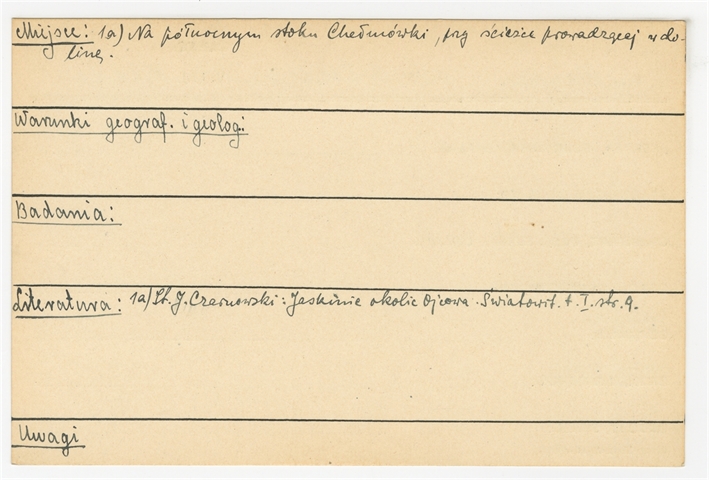 Miejsce: 1a) Na północnym stoku Chełmówki, przy ścieżce prowadzącej w do-
linę.
Warunki geograf. i geolog.
Badania:
Literatura: 1a) St. J. Czarnowski: Jaskinie okolic Ojcowa. Światowit. t. I. str. 9.
Uwagi